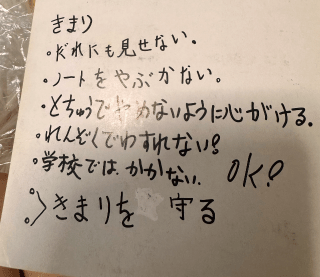 きまり
・だれにも見せない。
・ノートをやぶかない。
・とちゅうでやめないように心がける。
・れんぞくでわすれない!
・学校では、かかない。 OK?
・>きまりを 守る